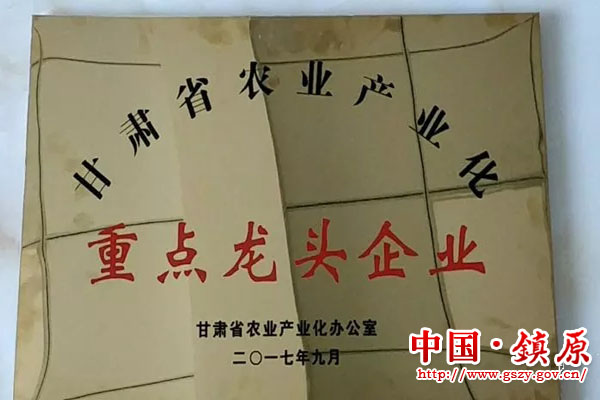 甘肃省农业产业化
重点龙头企业
甘肃省农业产业化办公室
二〇一七年九月
中国·鎮原
http://www.gszy.gov.cn/